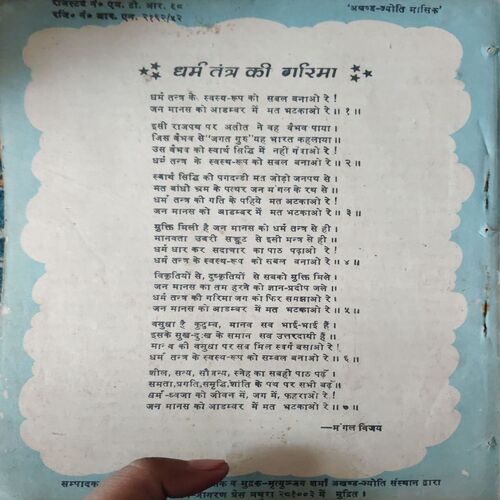 रजिस्टर्ड नं० एम. डी. आर. १८
रजि. नं० आर. एन. २१६२/५२
'अखण्ड-ज्योति मासिक'
धर्म तंत्र की गरिमा
धर्म तन्त्र के स्वस्थ-रूप को सबल बनाओ रे !
जन मानस को आडम्बर में मत भटकाओ रे ॥ १ ॥
इसी राजपथ पर अतीत ने वह वैभव पाया ।
जिस वैभव से "जगत गुरु" यह भारत कहलाया ॥
उस वैभव को स्वार्थ सिद्धि में नहीं गंवाओ रे !
धर्म तन्त्र के स्वस्थ-रूप को सबल बनाओ रे ॥ २ ॥
स्वार्थ सिद्धि की पगदन्डी मत जोड़ो जनपथ से ।
मत बांधो भ्रम के पत्थर जन मंगल के रथ से ॥
धर्म तन्त्र की गति के पहिये मत अटकाओ रे !
जन मानस को आडम्बर में मत भटकाओ रे ॥ ३ ॥
मुक्ति मिली है जन मानस को धर्म तन्त्र से ही ।
मानवता उबरी सङ्कट से इसी मन्त्र से ही ॥
धर्म धार कर सदाचार का पाठ पढ़ाओ रे !
धर्म तन्त्र के स्वस्थ-रूप को सबल बनाओ रे ॥ ४ ॥
विकृतियों से, दुष्कृतियों से सबको मुक्ति मिले ।
जन मानस का तम हरने को ज्ञान-प्रदीप जले ॥
धर्म तन्त्र की गरिमा जग को फिर समझाओ रे !
जन मानस को आडम्बर में मत भटकाओ रे ॥ ५ ॥
वसुधा है कुटुम्ब, मानव सब भाई-भाई हैं ।
इसके सुख-दुःख के समान सब उत्तरदायी हैं ॥
मानव की वसुधा पर सब मिल स्वर्ग बसाओ रे !
धर्म तन्त्र के स्वस्थ-रूप को सम्बल बनाओ रे ॥ ६ ॥
शील, सत्य, सौजन्य, स्नेह का सबही पाठ पढ़ें ।
समता, प्रगति, समृद्धि, शांति के पथ पर सभी बढ़ें ॥
धर्म-ध्वजा को जीवन में, जग में, फहराओ रे !
जन मानस को आडम्बर में मत भटकाओ रे ॥ ७ ॥
—मंगल विजय
सम्पादक व मुद्रक-मृत्युञ्जय शर्मा अखण्ड-ज्योति संस्थान द्वारा
जागरण प्रेस मथुरा २८१००३ में मुद्रित ।